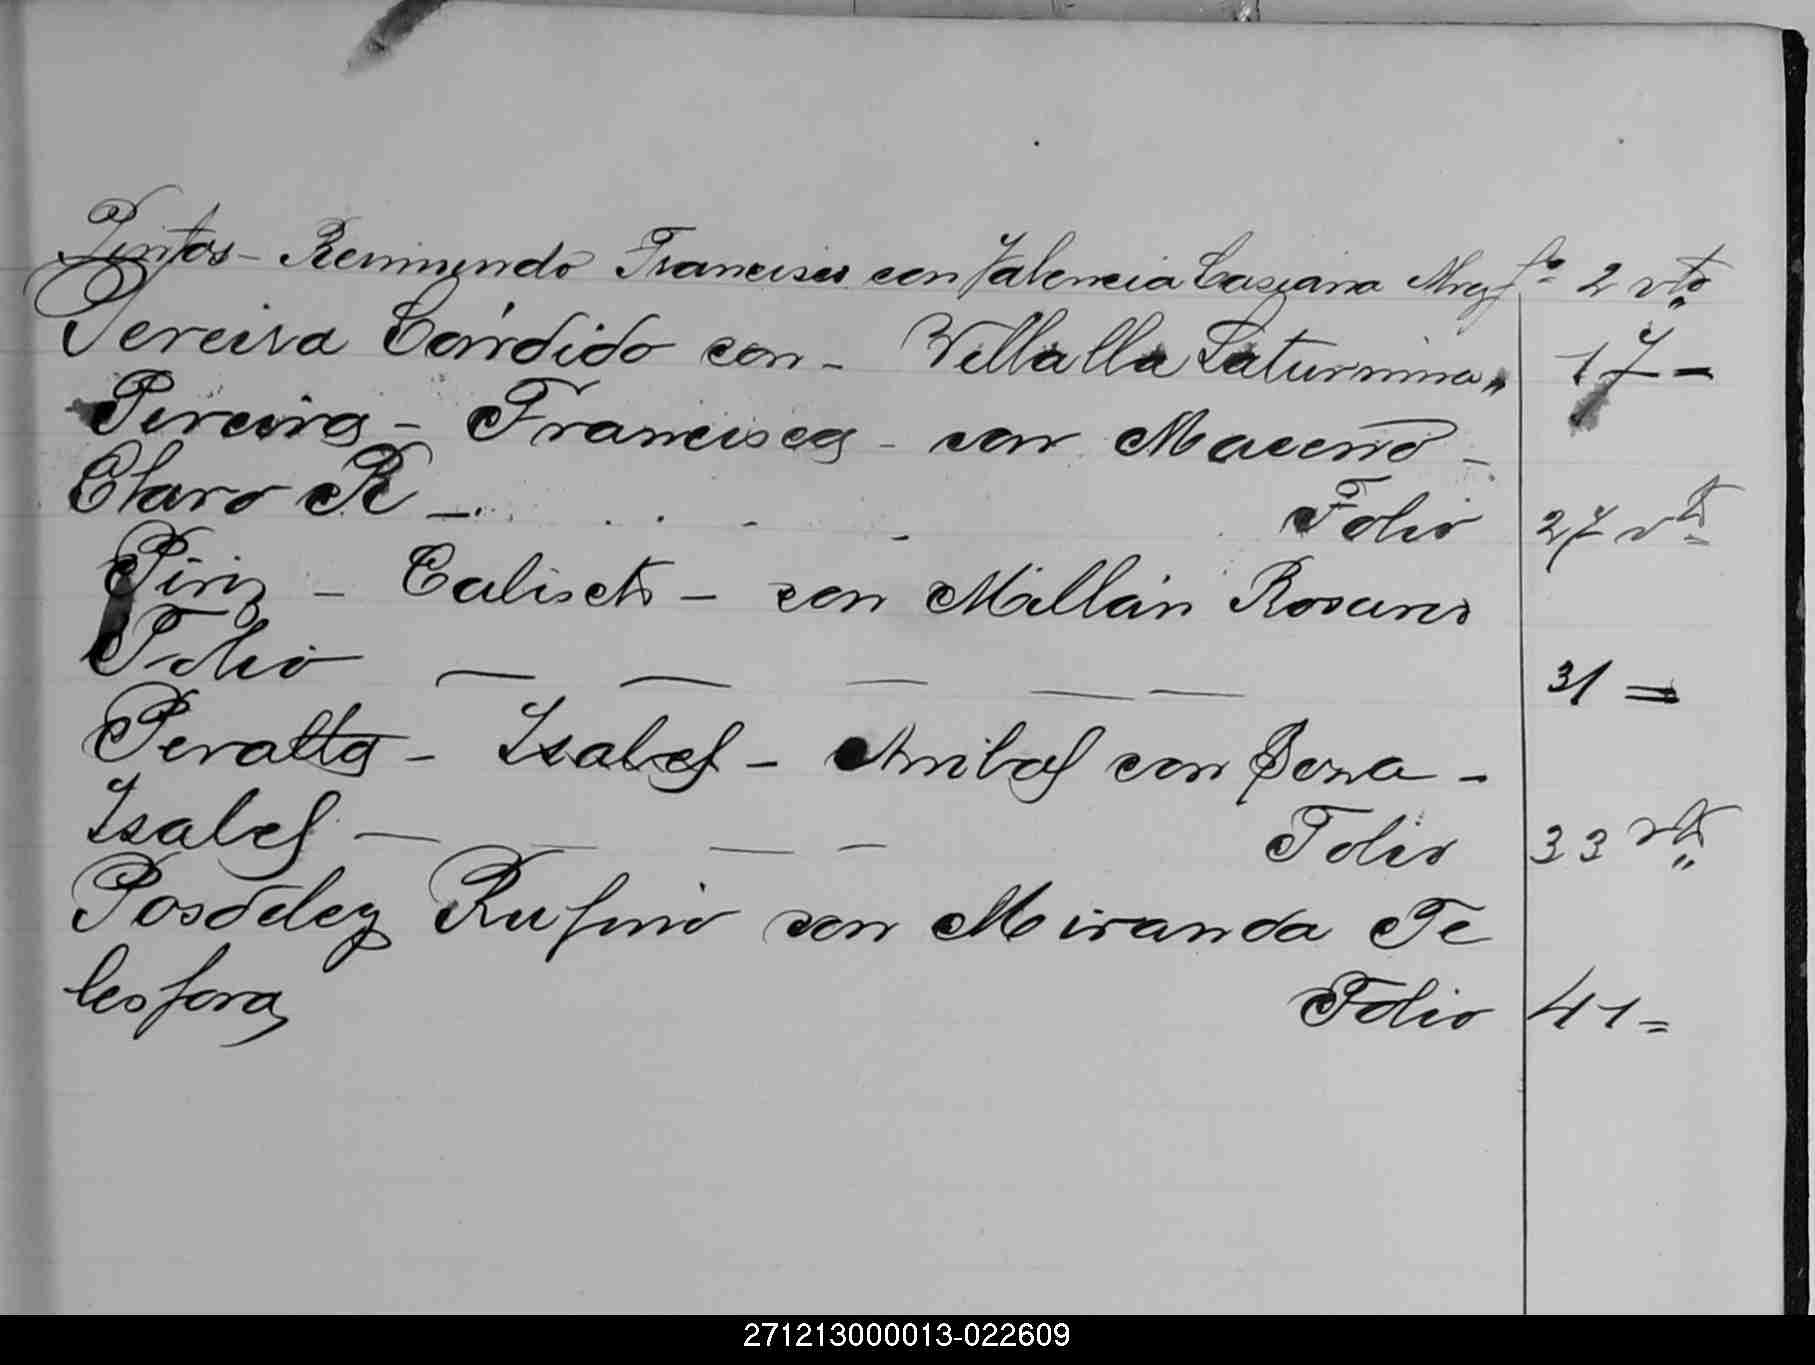 Pintos - Reimundo Francisco con Valencia Casiana fo 2 vto
Pereira Cándido con - Villalla Saturnina " 17 -
Pereira - Francisca - con Maceno -
Claro R - Folio 27 vto
Piriz - Calisto - con Millán Rosario
Folio — — — — — 31 =
Peralta - Isabel - Anibal con Soza -
Isabel — — — — Folio 33 vto
Posdeley Rufino con Miranda Te
lesfora Folio 41 =
271213000013-022609